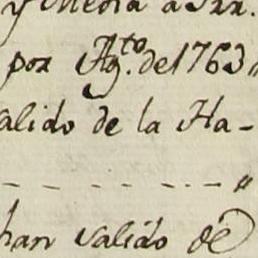 y Media a 122.
por Ag.to de 1763"
alido de la Ha-
han valido de